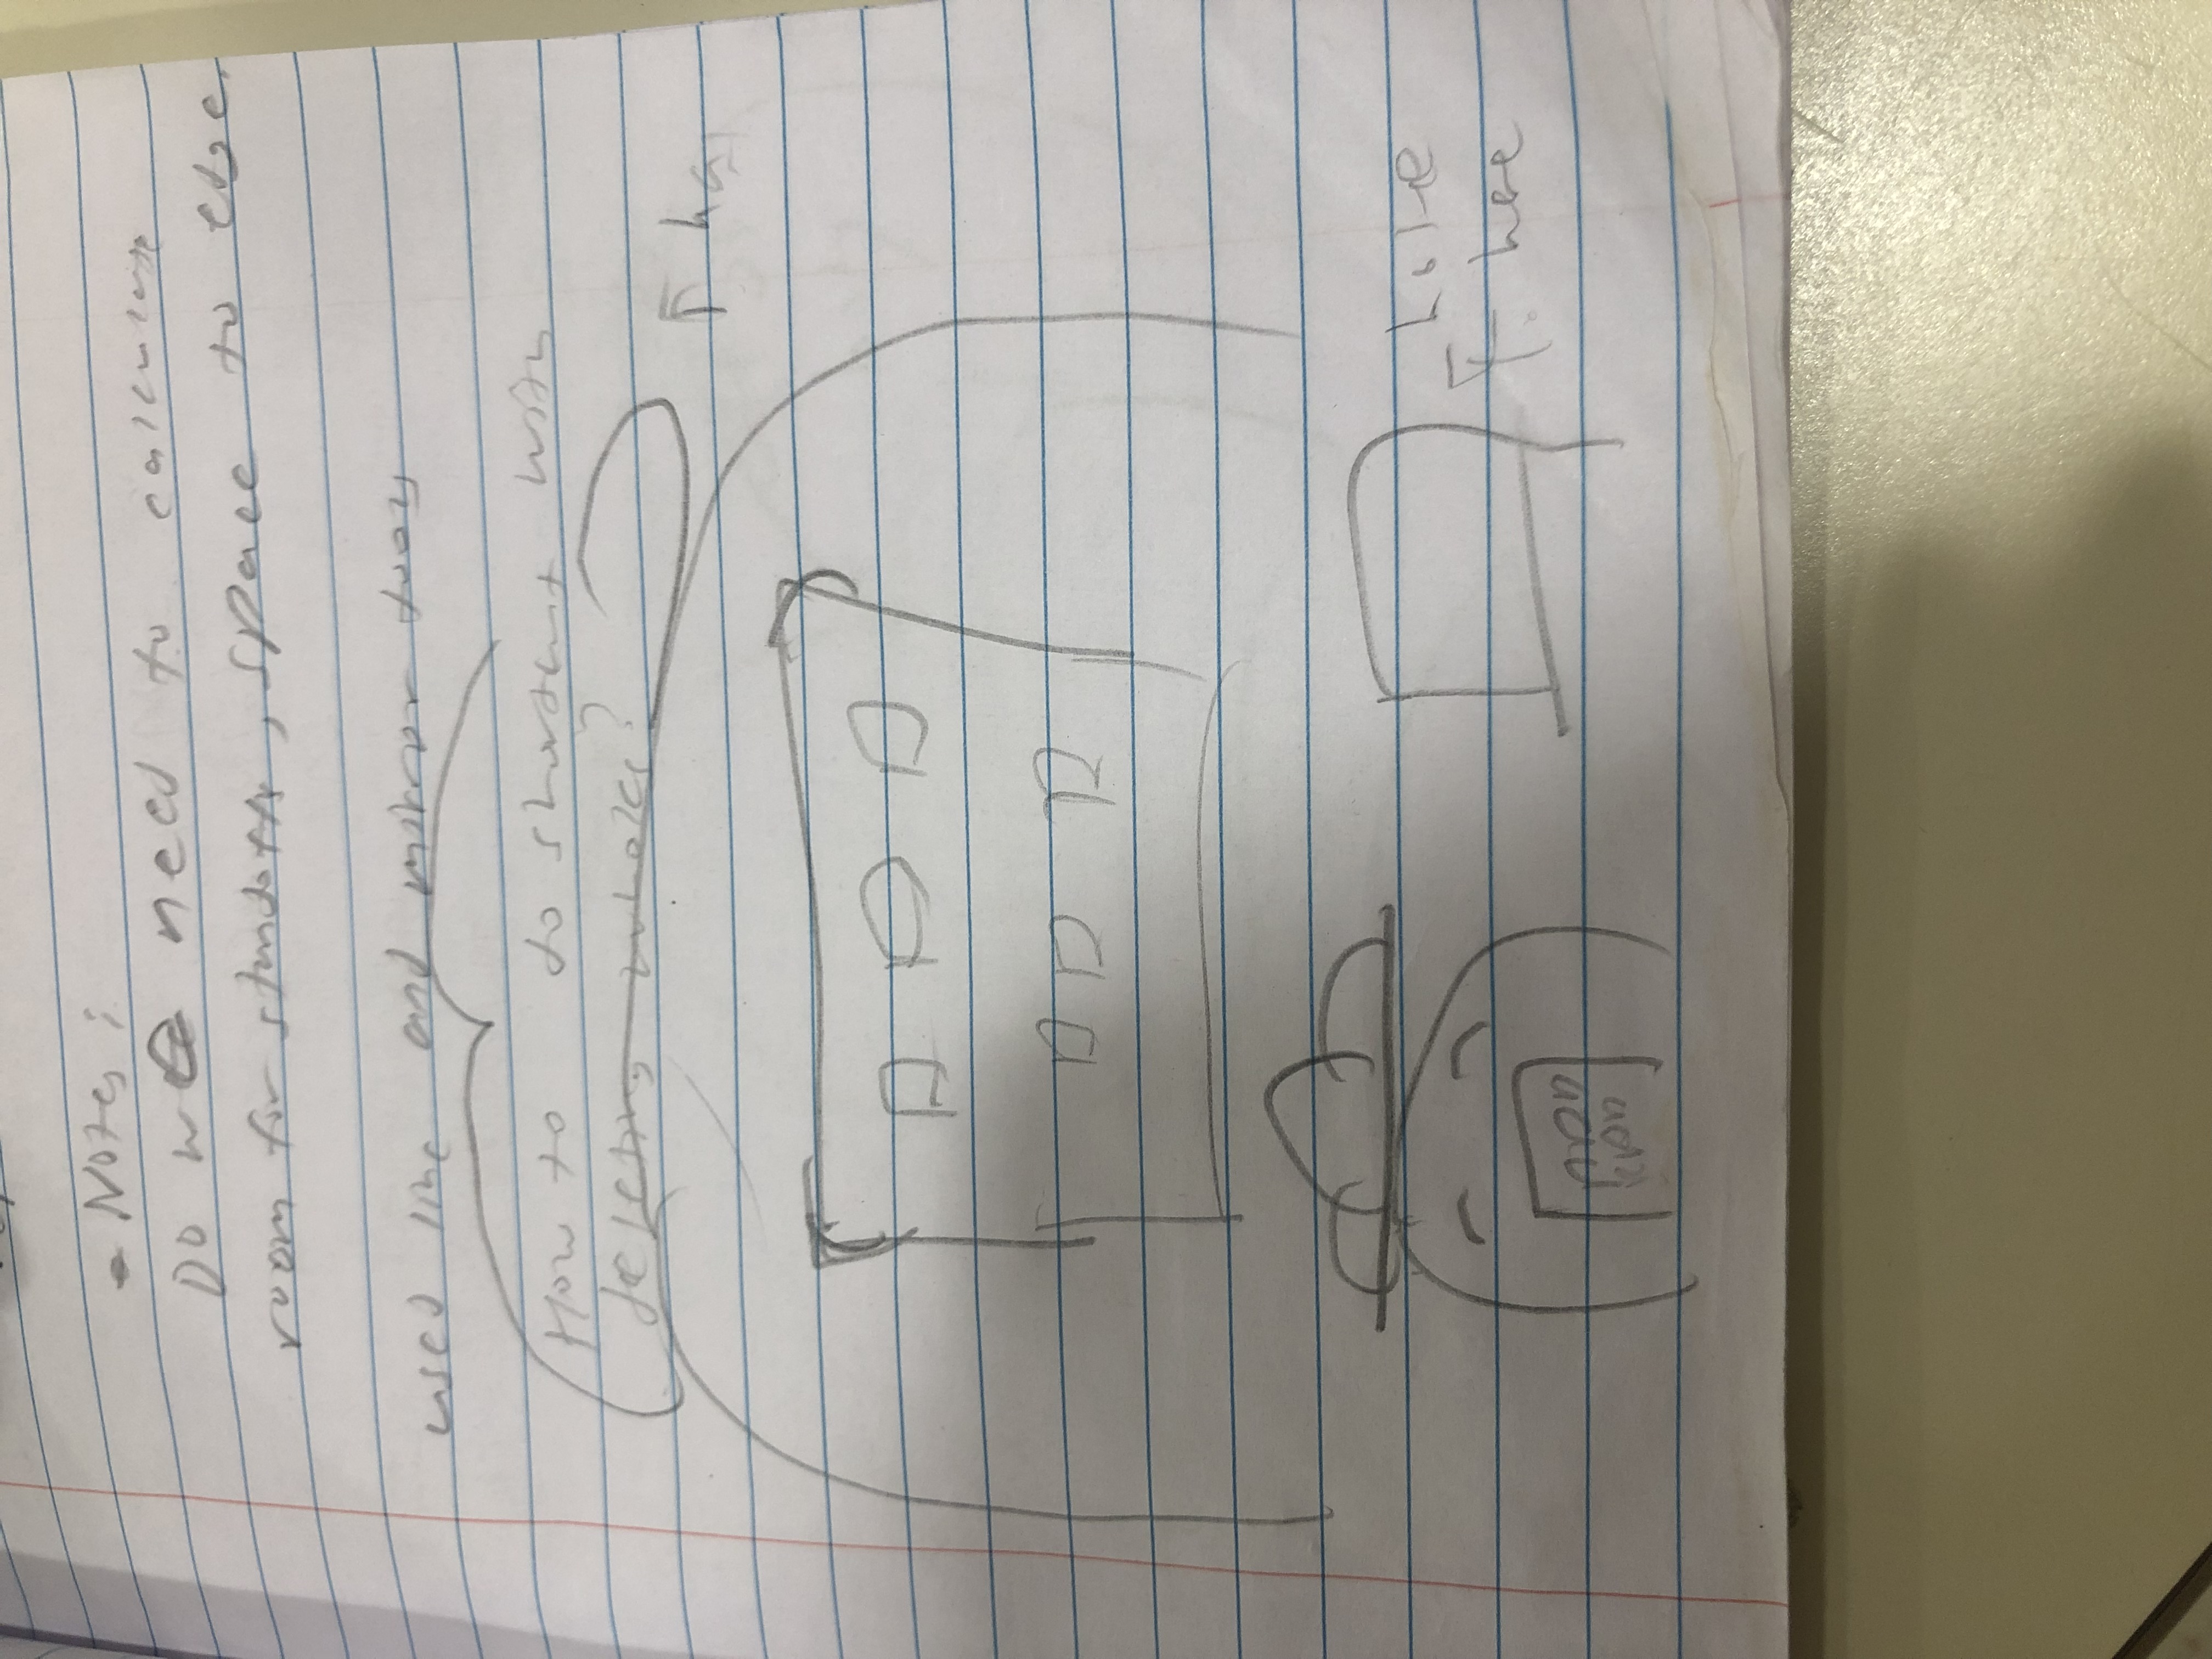 - Notes:
Do we need to calculate
room for standoffs, space to edge.
used line and mirror tools
How to do shortcut with
deleting wholes?
hole
here